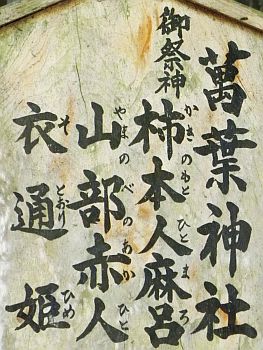 萬葉神社
御祭神
柿本人麻呂
かきのもと ひとまろ
山部赤人
やまのべのあかひと
衣通姫
そとおりひめ